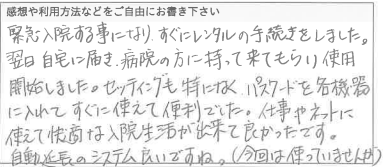 感想や利用方法などをご自由にお書き下さい
緊急入院する事になり、すぐにレンタルの手続きをしました。
翌日自宅に届き、病院の方に持って来てもらい使用
開始しました。セッティングも特になく パスワードを各機器
に入れて すぐに使えて便利でした。仕事やネットに
使えて快適な入院生活が出来て良かったです。
自動延長のシステム良いですね。(今回は使っていませんが)